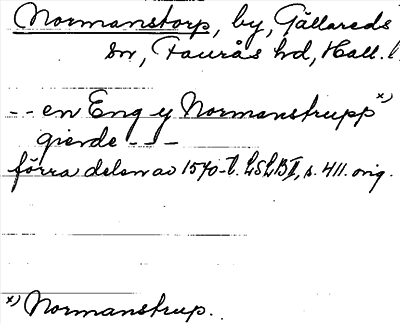 Normanstorp, by, Gällareds
sn, Faurås hd, Hall. l.
- - en Eng y Normanstrupp x)
gierde - - -
förra delen av 1540-t. LSLB II, s. 411. orig.
x) Normanstrup.